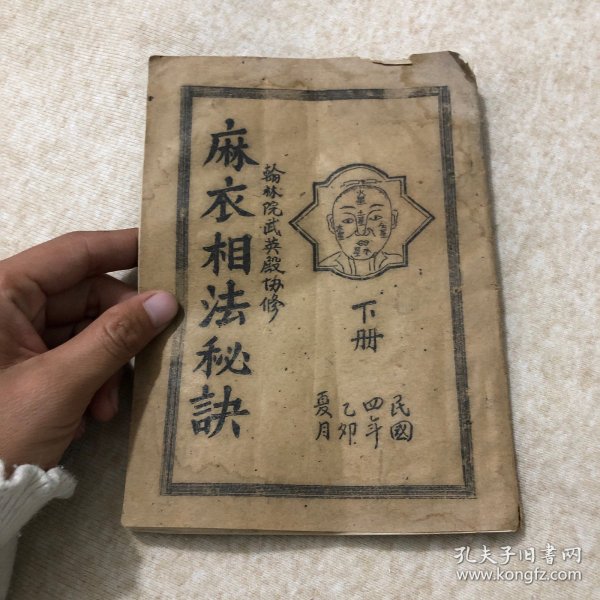 麻衣相法秘訣
翰林院武英殿协修
火星
土星
水星
下册
民國
四年
乙卯
夏月
孔夫子旧书网
www.kongfz.com